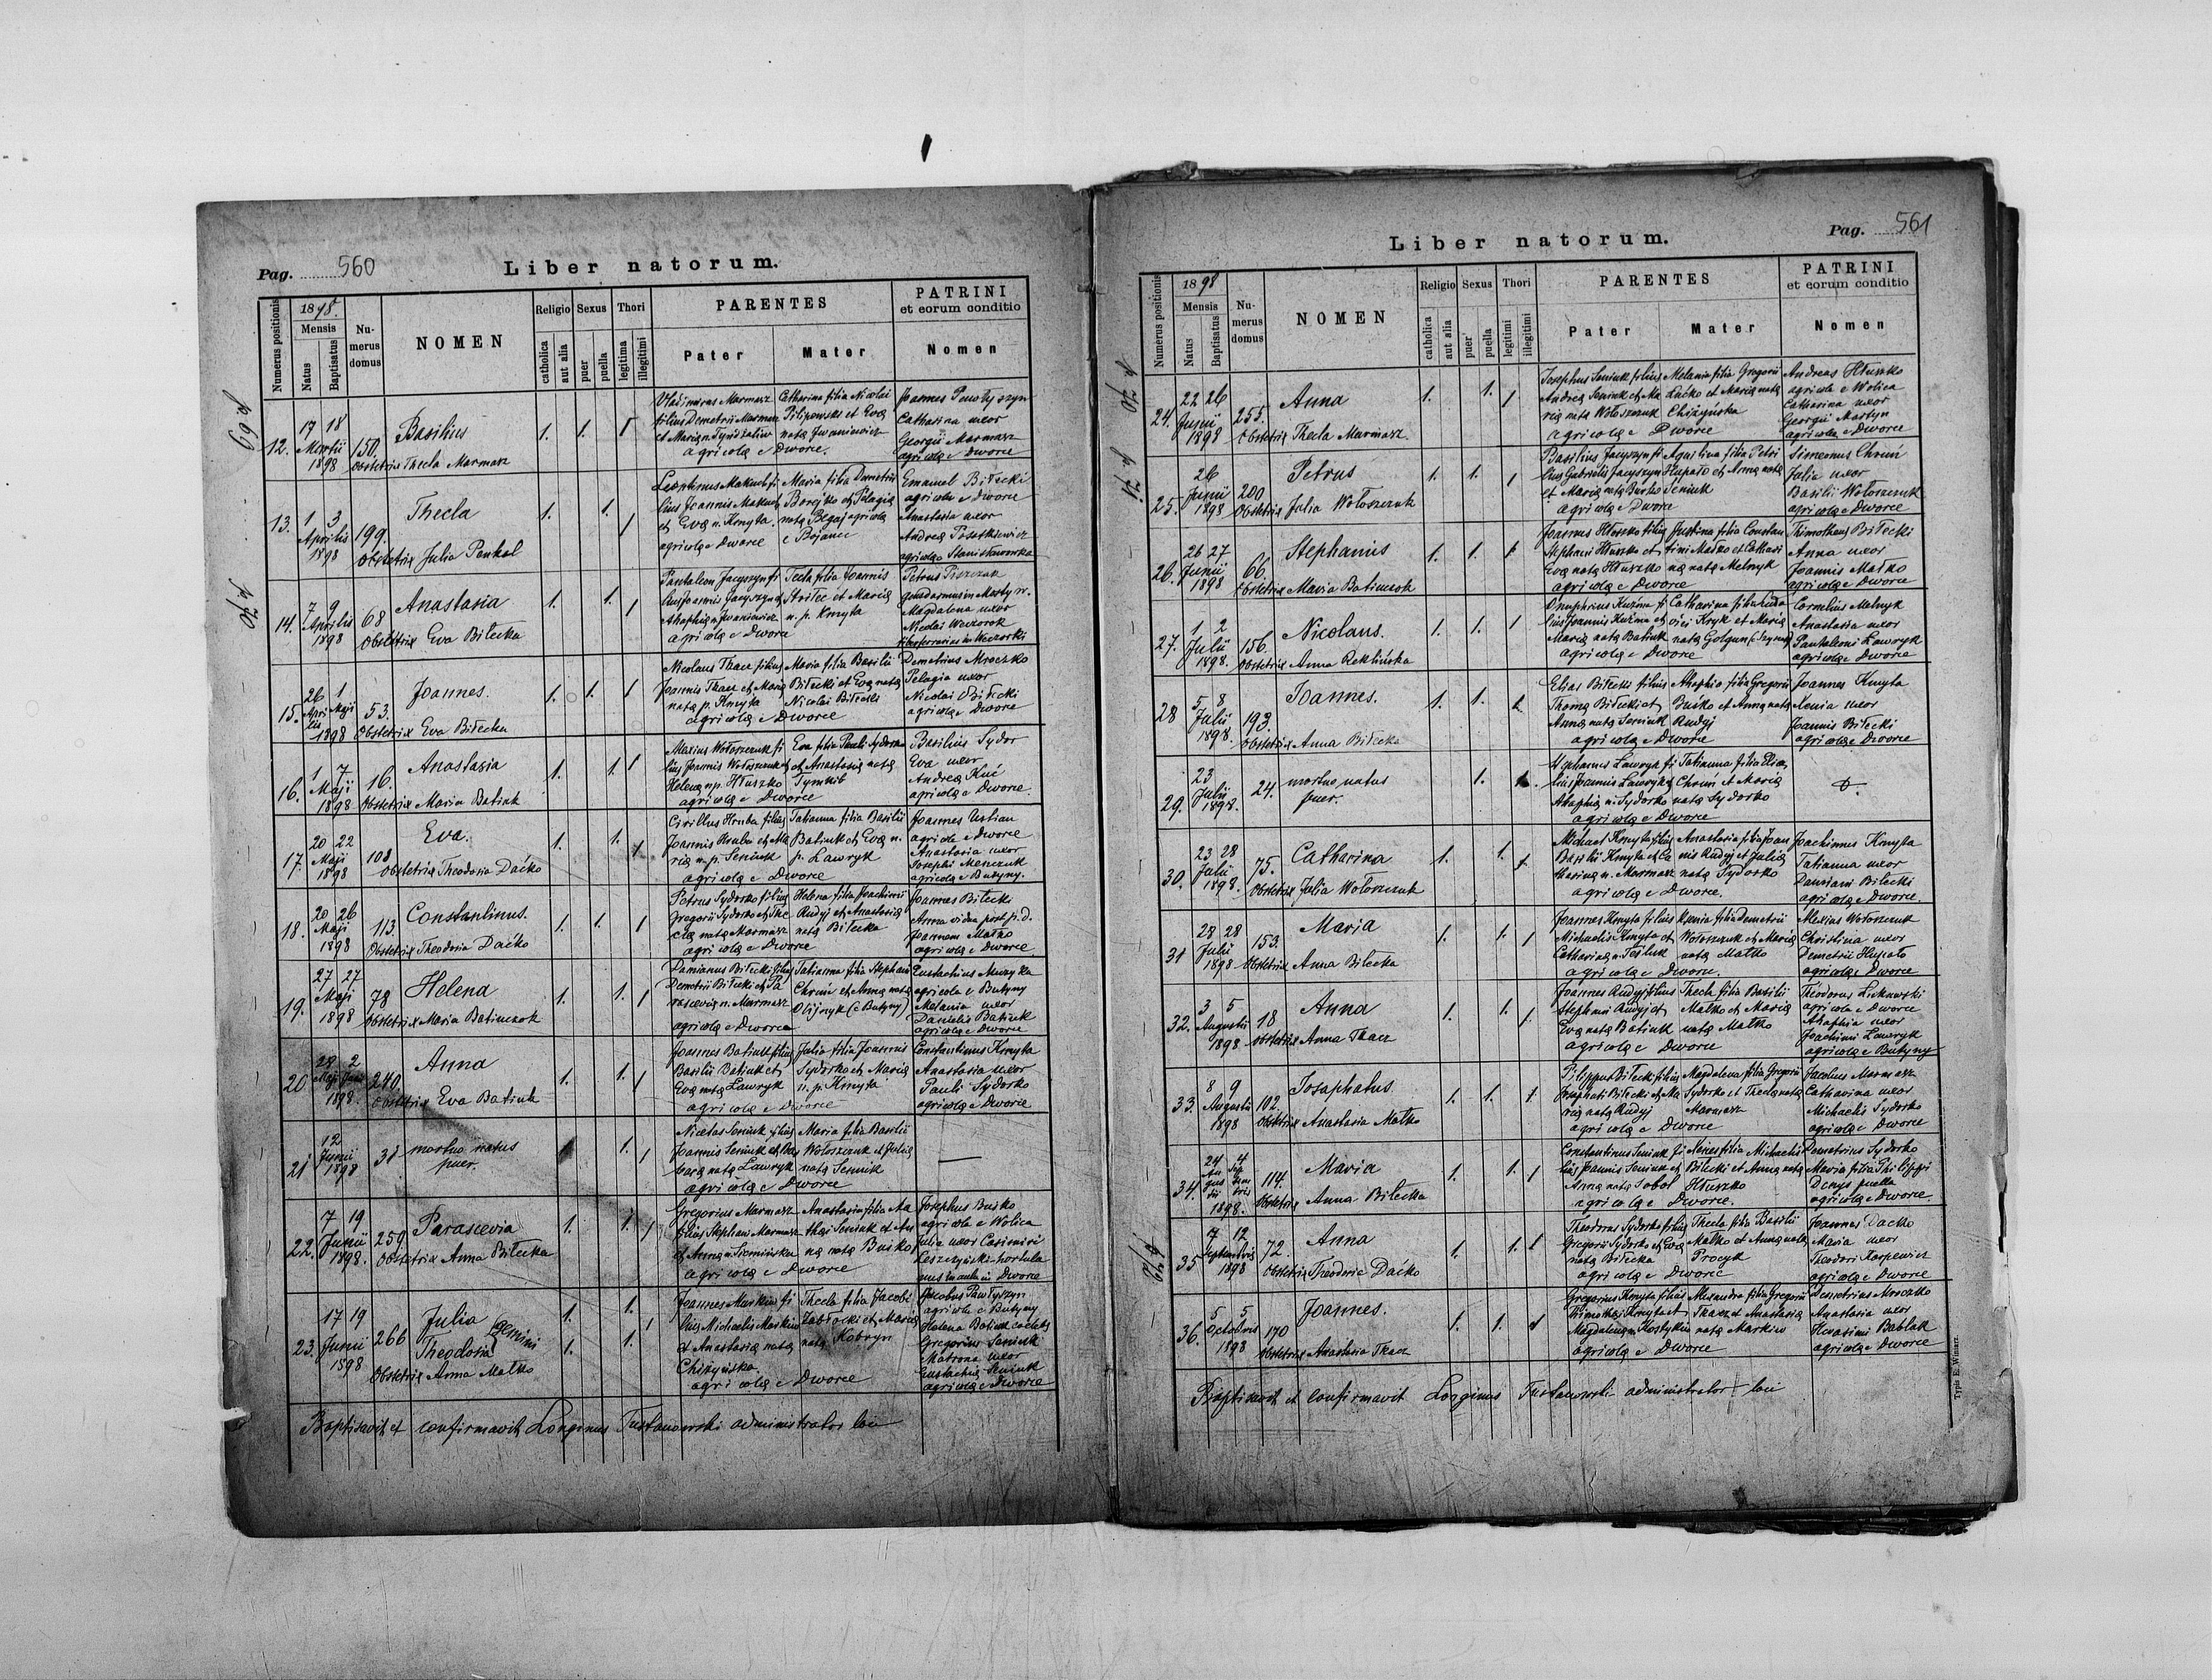 Pag. 560
Liber natorum.
Numerus positionis
1898.
Mensis
Natus
Baptisatus
Numerus domus
NOMEN
Religio
catholica
aut alia
Sexus
puer
puella
Thori
legitima
illegitimi
PARENTES
Pater
Mater
PATRINI
et eorum conditio
Nomen
12.
17 18
Martii
1898
150.
Basilius
Obstetrix Thecla Marmasz
1. 1. 1
Vladimirus Marmasz
filius Demetrii Marmasz
agricolę e Dworce.
Catharina filia Nicolai
Pilipowski et Evę
natę Iwaniewicz
Joannes
Catharina uxor
Georgii Marmasz
agricolę e Dworce
13.
1 3
Aprilis
1898
199.
Thecla
Obstetrix Julia Pankal
1. 1. 1
Maria filia Demetrii
et Evę n. Kmyta
agricolę e Dworce
Emanuel Biłecki
agricola e Dworce
Anastasia uxor
14.
7 9
Aprilis
1898
68
Anastasia
Obstetrix Eva Bilecka
1. 1. 1
Pantaleon Jacyszyn fi
lius Joannis Jacyszyn et
Ahaphię n. Iwaniewicz
agricolę e Dworce
Tecla filia Joannis
et Marię
n. p. Kmyta
Magdalena uxor
15.
26 1
Apri Maji
lis
1898
53.
Joannes.
Obstetrix Eva Biłecka
1. 1. 1
Nicolaus Tkacz filius
Joannis Tkacz et Marię
natę p. Kmyta
agricolę e Dworce
Maria filia Basilii
Biłecki et Evę natę
Nicolai Biłecki
Demetrius Mroczko
Pelagia uxor
Nicolai Biłecki
agricolę e Dworce
16.
1 7
Maji
1898
16.
Anastasia
Obstetrix Maria Batiuk
1. 1. 1
Maxius Wołoszczuk fi
lius Joannis Wołoszczuk et
Helenę n. p. Hłuszko
agricolę e Dworce
Eva filia Pauli Sydorko
et Anastasię natę
Basilius Sydor
Eva uxor
agricolę e Dworce.
17.
20 22
Maji
1898
108
Eva.
Obstetrix Theodosia Daćko
1. 1. 1
Cirillus Hruba filius
Joannis Hruba et Ma
rię n. p. Seniuk
agricolę e Dworce
Tatianna filia Basilii
Batiuk et Evę n.
p. Lawryk
Joannes Ustian
agricola e Dworce
Anastasia uxor
agricolę e Butyny.
18.
20 26
Maji
1898
113.
Constantinus.
Obstetrix Theodosia Daćko
1. 1. 1
Petrus Sydorko filius
Gregorii Sydorko et The
clę natę Marmasz
agricolę e Dworce
Helena filia Joachimi
Rudyj et Anastasię
natę Bilecka
Joannes Biłecki
Anna vidua post p. d.
Joannem Małko
agricolę e Dworce
19.
27 27
Maji
1898
78
Helena
Obstetrix Maria Batiuczok
1. 1. 1
Damianus Biłecki filius
Demetrii Biłecki et Pa
rascevię n. Marmasz
agricolę e Dworce
Tatianna filia Stephani
Chruń et Annę natę
Olijnyk (e Butyny)
Eustachius Muzyka
agricola e Butyny
Melania uxor
Danielis Batiuk
agricolę e Dworce
20
28 2
Maji Junii
1898
240
Anna
Obstetrix Eva Batiuk
1. 1. 1
Joannes Batiuk filius
Basilii Batiuk et
Evę natę Lawryk
agricolę e Dworce
Julia filia Joannis
Sydorko et Marię
n. p. Kmyta
Constantinus Kmyta
Anastasia uxor
Pauli Sydorko
agricolę e Dworce
21
12
Junii
1898
31
mortuo natus
puer.
1. 1
Nicetas Seniuk filius
Joannis Seniuk et
natę Lawryk
agricolę e Dworce
Maria filia Basilii
Wołoszczuk et Julię
natę Seniuk
22.
17 19
Junii
1898.
259
Parascevia
Obstetrix Anna Biłecka
1. 1. 1
Gregorius Marmasz
filius Stephani Marmasz
agricolę e Dworce
Anastasia filia
Seniuk et An
nę natę Busko
Josephus Busko
agricola e Wolica
Julia uxor Casimiri
23.
17 19
Junii
1898
266
Julia
Theodosia
Gemini
Obstetrix Anna Małko
1. 1. 1
1. 1.
Joannes Markiw fi
lius Michaelis Markiw
et Anastasię natę
Chiżyńska.
agricolę e Dworce
Thecla filia Jacobi
et Marię
natę Kobryn
Jacobus Pawłyszyn
agricola e Butyny
Helena Batiuk
Gregorius Seniuk
Matrona uxor
Eustachii Seniuk
agricolę e Dworce
Baptisavit et confirmavit Longinus Tustanowski administrator loci
Pag. 561
Liber natorum.
Numerus positionis
1898
Mensis
Natus
Baptisatus
Numerus domus
NOMEN
Religio
catholica
aut alia
Sexus
puer
puella
Thori
legitimi
illegitimi
PARENTES
Pater
Mater
PATRINI
et eorum conditio
Nomen
24.
22 26
Junii
1898
255.
Anna
Obstetrix Thecla Marmasz.
1. 1. 1
Josephus Seniuk filius
Andreę Seniuk et Ma
rię natę Wołoszczuk
agricolę e Dworce
Melania filia Gregorii
Laćko et Marię natę
Chiżyńska
Andreas Hłuszko
agricola e Wolica
Catharina uxor
Georgii Martyn
agricolę e Dworce
25.
26
Junii
1898
200
Petrus
Obstetrix Julia Wołoszczuk
1. 1. 1
Basilius Jacyszyn fi
lius Gabrielis Jacyszyn
et Marię natę Busko
agricolę e Dworce
Aquilina filia Petri
Hupało et Annę natę
Seniuk
Simeonus Chruń
Julia uxor
Basilii Wołoszczuk
agricolę e Dworce
26.
26 27
Junii
1898
66.
Stephanus
Obstetrix Maria Batiuczok
1. 1. 1
Joannes Hłuszko filius
Stephani Hłuszko et
Evę natę Hłuszko
agricolę e Dworce
Justina filia Constan
tini Małko et Cathari
nę natę Melnyk
Thimotheus Biłecki
Anna uxor
Joannis Małko
agricolę e Dworce
27.
1 2
Julii
1898.
156.
Nicolaus.
Obstetrix Anna Reklińska
1. 1. 1
Onuphrius Kuźma fi
lius Joannis Kuźma et
Marię natę Batiuk
agricolę e Dworce
Catharina filia
Kryk et Marię
Cornelius Melnyk
Anastasia uxor
Pantaleoni Lawryk
agricolę e Dworce
28
5 8
Julii
1898.
193.
Joannes.
Obstetrix Anna Biłecka
1. 1. 1
Elias Biłecki filius
Thomę Biłecki et
Annę natę Seniuk
agricolę e Dworce
Ahaphia filia Gregorii
Busko et Annę natę
Rudyj
Joannes Kmyta
Xenia uxor
Joannis Biłecki
agricolę e Dworce
29.
23
Julii
1898.
24.
mortuo natus
puer.
1. 1.
Stephanus Lawryk fi
lius Joannis Lawryk et
Ahaphię n. Sydorko
agricolę e Dworce
Tatianna filia Elię
Chruń et Marię
natę Sydorko
30.
23 28
Julii
1898.
75.
Catharina
Obstetrix Julia Wołoszczuk
1. 1. 1
Michael Kmyta filius
Basilii Kmyta et Ca
tharinę n. Marmasz
agricolę e Dworce.
Anastasia filia Joan
nis Rudyj et Julię
natę Sydorko
Joachimus Kmyta
Tatianna uxor
Damiani Bilecki
agricolę e Dworce.
31
28 28
Julii
1898
153.
Maria
Obstetrix Anna Bilecka
1. 1. 1
Joannes Kmyta filius
Michaelis Kmyta et
Catharinę n. Tesluk
agricolę e Dworce.
Xenia filia Demetrii
Wołoszczuk et Marię
natę Małko
Alexius Wołoszczuk
Christina uxor
Demetrii Hupało
agricolę e Dworce
32.
3 5
Augusti
1898
18
Anna
Obstetrix Anna Tkacz
1. 1. 1
Joannes Rudyj filius
Stephani Rudyj et
Evę natę Batiuk
agricolę e Dworce
Thecla filia Basilii
Małko et Marię
natę Małko
Theodorus Lukawski
agricola e Dworce
Ahaphia uxor
Joachimi Lawryk
agricolę e Butyny
33.
8 9
Augusti
1898
102.
Josaphatus.
Obstetrix Anastasia Małko
1. 1. 1
Pilippus Biłecki filius
Josaphati Biłecki et Ma
rię natę Rudyj
agricolę e Dworce
Magdalena filia Gregorii
Sydorko et Theclę natę
Marmasz
Jacobus Marmasz
Catharina uxor
Michaelis Sydorko
agricolę e Dworce
34.
24 4
Au Sep
gus tem
ti bris
1898.
114.
Maria
Obstetrix Anna Bilecka
1. 1. 1
Constantinus Seniuk fi
lius Joannis Seniuk et
Annę natę Sobol
agricolę e Dworce.
Xenia filia Michaelis
Biłecki et Annę natę
Hłuszko
Demetrius Sydorko
Maria filia Philippi
Denys puella
agricolę e Dworce.
35
7 12
Septembris
1898
72.
Anna
Obstetrix Theodosia Daćko
1. 1. 1
Theodorus Sydorko filius
Gregorii Sydorko et Evę
natę Biłecka
agricolę e Dworce
Thecla filia Basilii
Małko et Annę natę
Procyk
Joannes Daćko
Maria uxor
Theodori Karpewicz
agricolę e Dworce
36.
5 5
Octobris
1898
170
Joannes.
Obstetrix Anastasia Tkacz
1. 1. 1
Gregorius Kmyta filius
Thimothei Kmyta et
Magdalenę n. Kostykiw
agricolę e Dworce
Alexandra filia Gregorii
Tkacz et Anastasię
natę Markiw
Demetrius Mroczko
Anastasia uxor
Harasimi Bablak
agricolę e Dworce
Baptisavit et confirmavit Longinus Tustanowski administrator loci
Typis E. Winiarz.